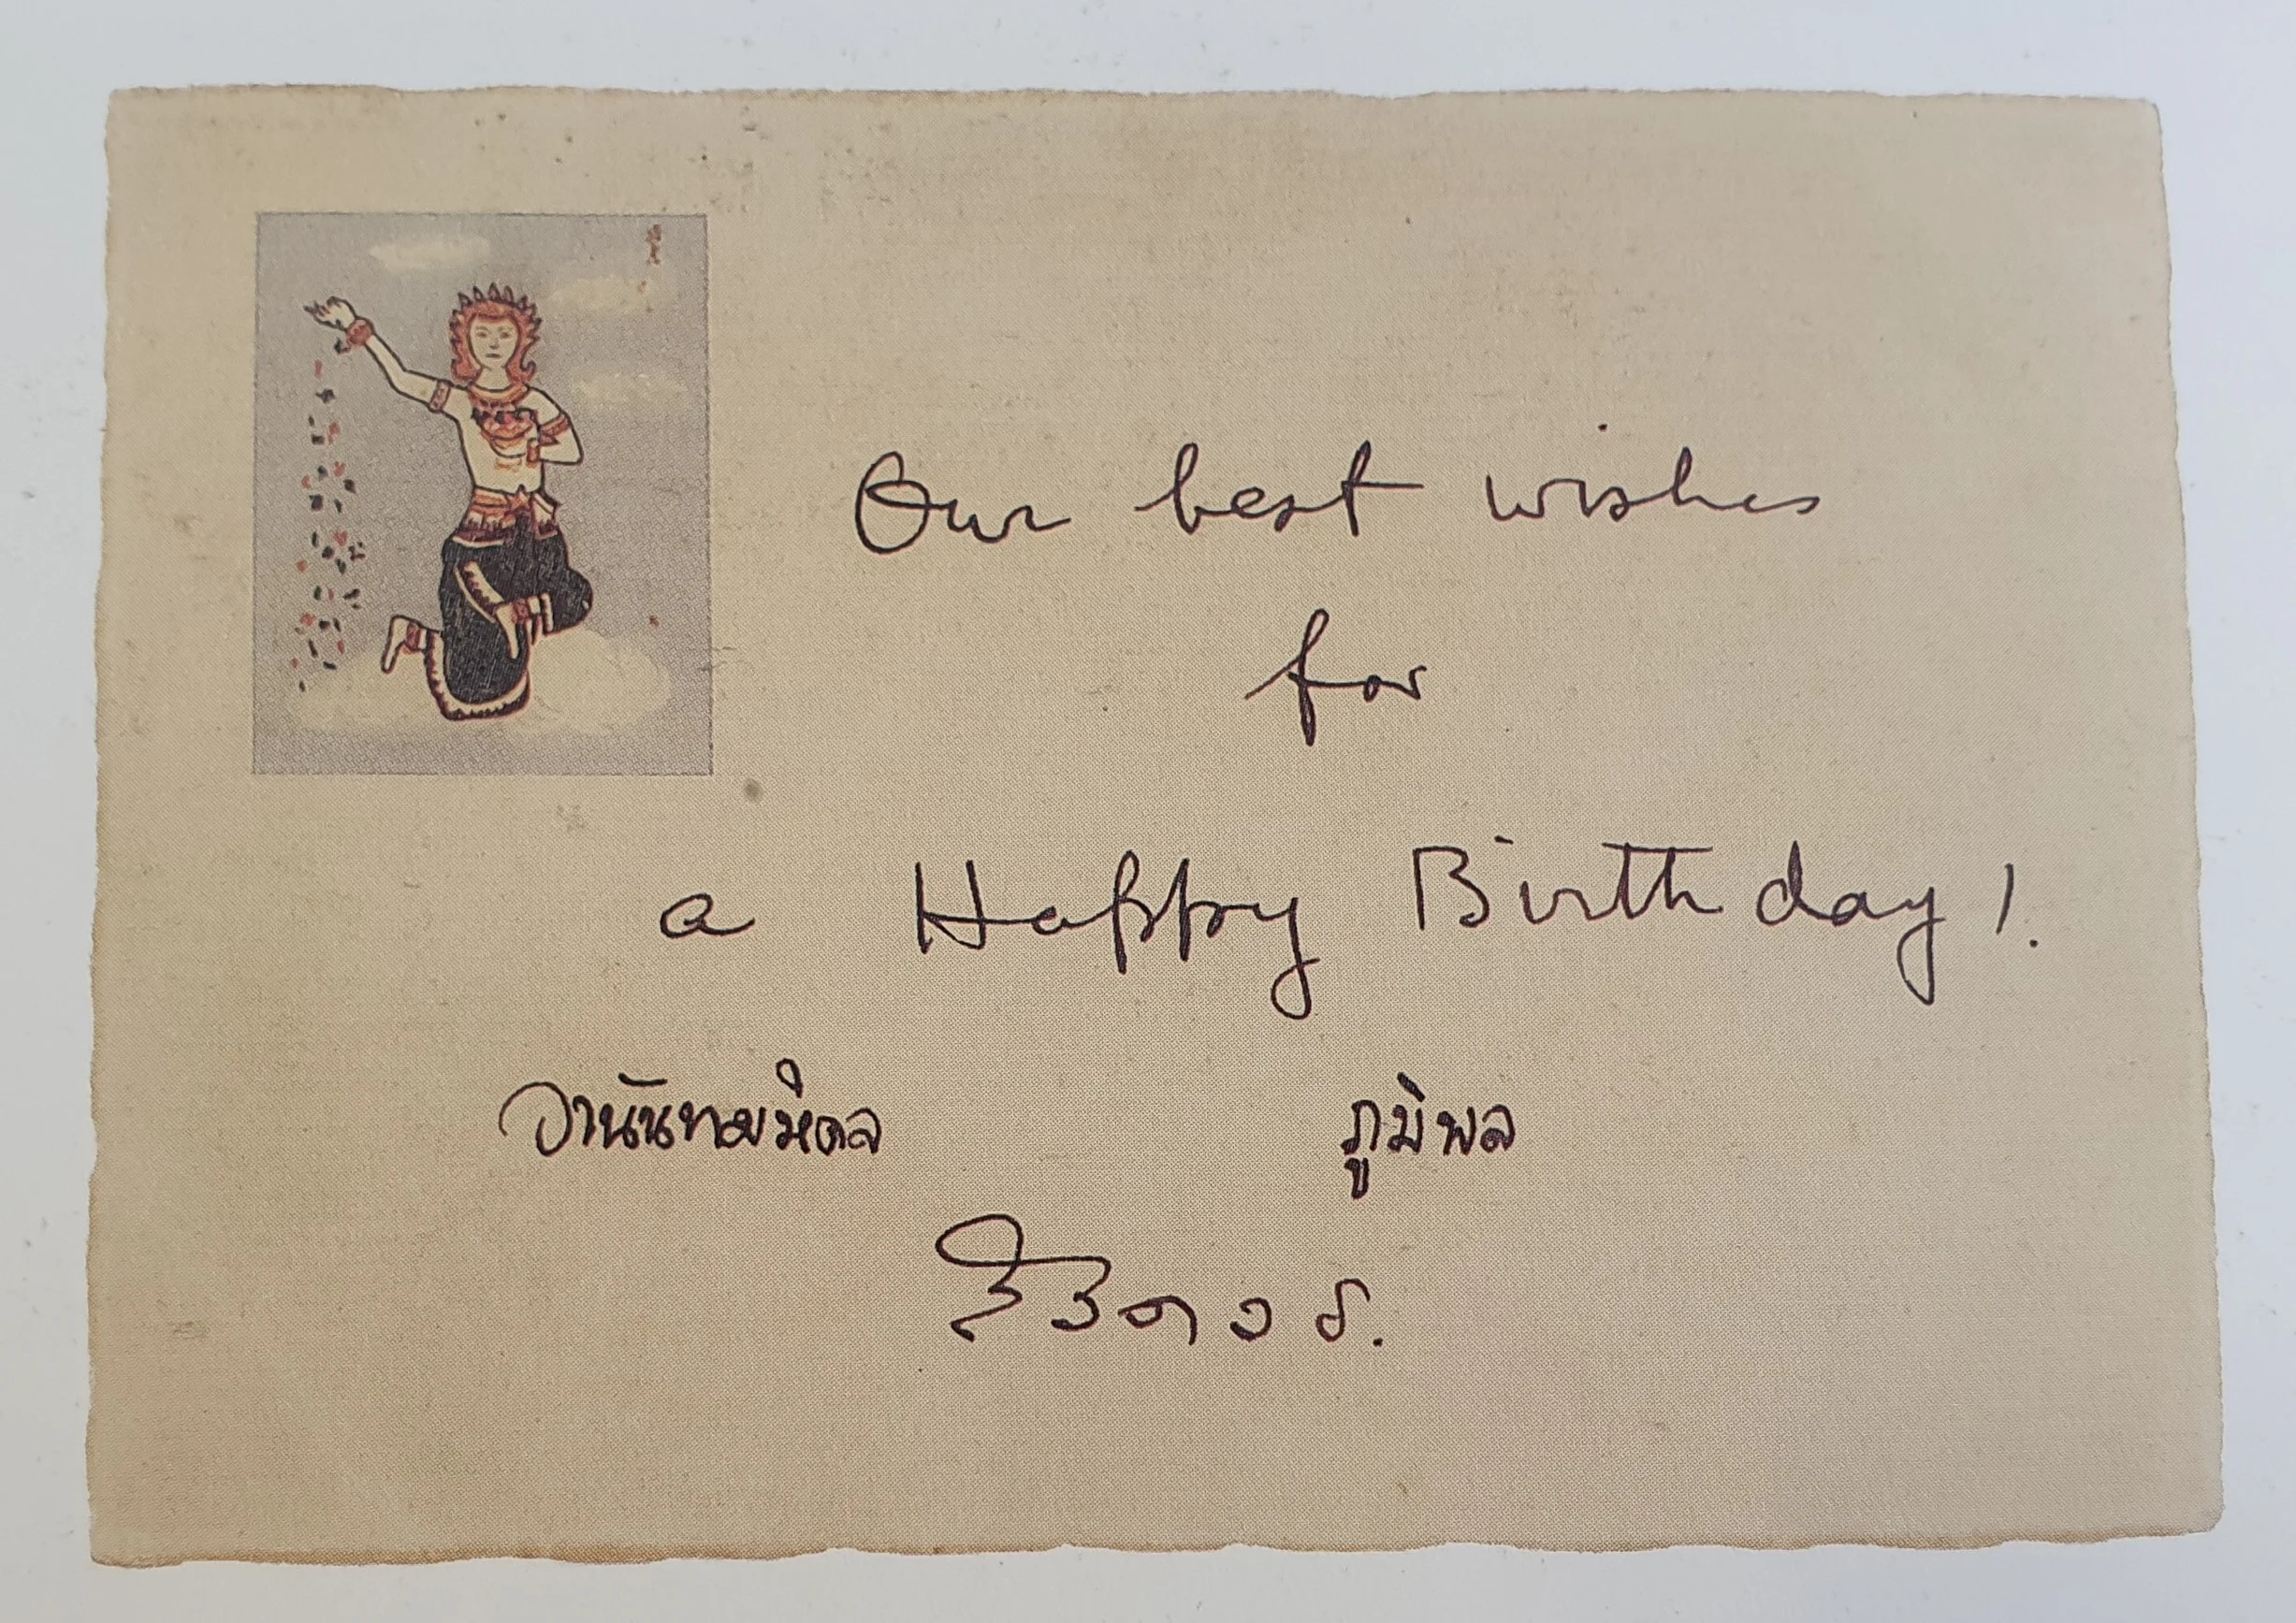 Our best wishes
for
a Happy Birthday!
อานันทมหิดล ภูมิพล